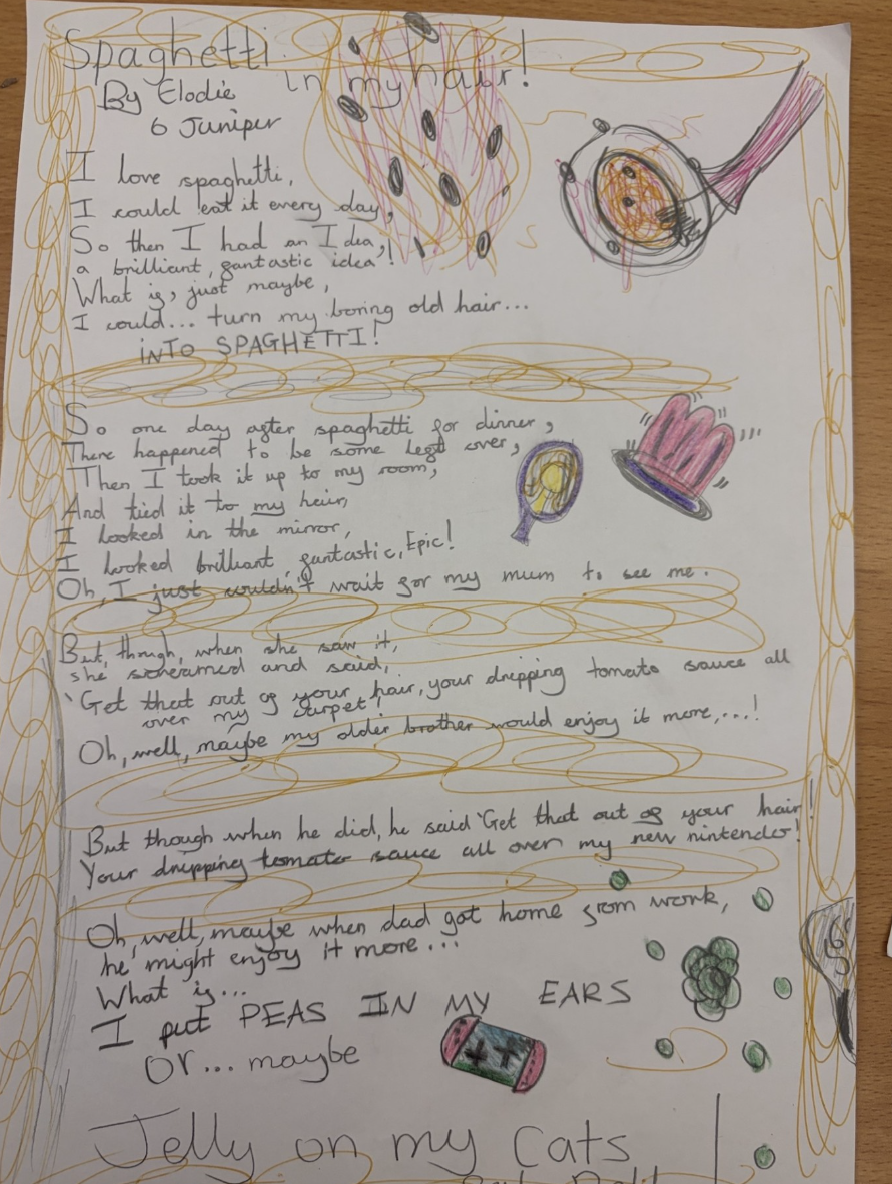 Spaghetti
in my hair!
By Elodie
6 Juniper
I love spaghetti,
I could eat it every day,
So then I had an Idea,
a brilliant, fantastic idea!
What if, just maybe,
I could... turn my boring old hair...
iNTO SPAGHETTI!
So one day after spaghetti for dinner,
There happened to be some left over,
Then I took it up to my room,
And tied it to my hair,
I looked in the mirror,
I looked brilliant, fantastic, Epic!
Oh, I just couldn't wait for my mum to see me.
But, though, when she saw it,
she screamed and said,
'Get that out of your hair, your dripping tomato sauce all
over my carpet!
Oh, well, maybe my older brother would enjoy it more,...!
But though when he did, he said 'Get that out of your hair!
Your dripping tomato sauce all over my new nintendo!
Oh, well, maybe when dad got home from work,
he might enjoy it more...
What if...
I put PEAS IN MY EARS
Or... maybe
Jelly on my Cats